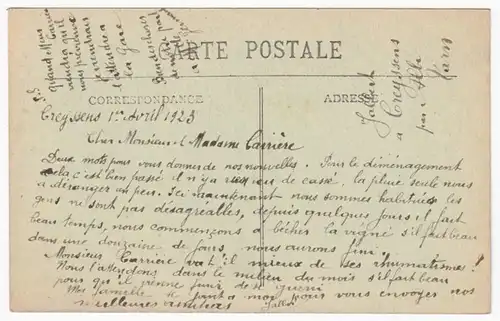 CARTE POSTALE
CORRESPONDANCE
ADRESSE
Creyssens 1er Avril 1923
Cher Monsieur et Madame Carrière
Deux mots pour vous donner de nos nouvelles. Pour le déménagement
cela c'est bien passé il n'y a rien eu de cassé. la pluie seule nous
a déranger un peu. Ici maintenant nous sommes habitués les
gens ne sont pas désagréables, depuis quelques jours il fait
beau temps, nous commençons à bêcher la vigne s'il fait beau
dans une douzaine de jours nous aurons fini.
Monsieur Carrière va t'il mieux de ses rhumatismes!
Nous l'attendons dans le milieu du mois s'il fait beau
pour qu'il
Ma famille se joint a moi pour vous envoyer nos
meilleures amitiers
Jalbert
P.S.
Quand Mr
viendra qu'il
nous prévienne
je viendrais
l'attendre a
la Gare
Jalbert
à Creyssens
par
Tarn